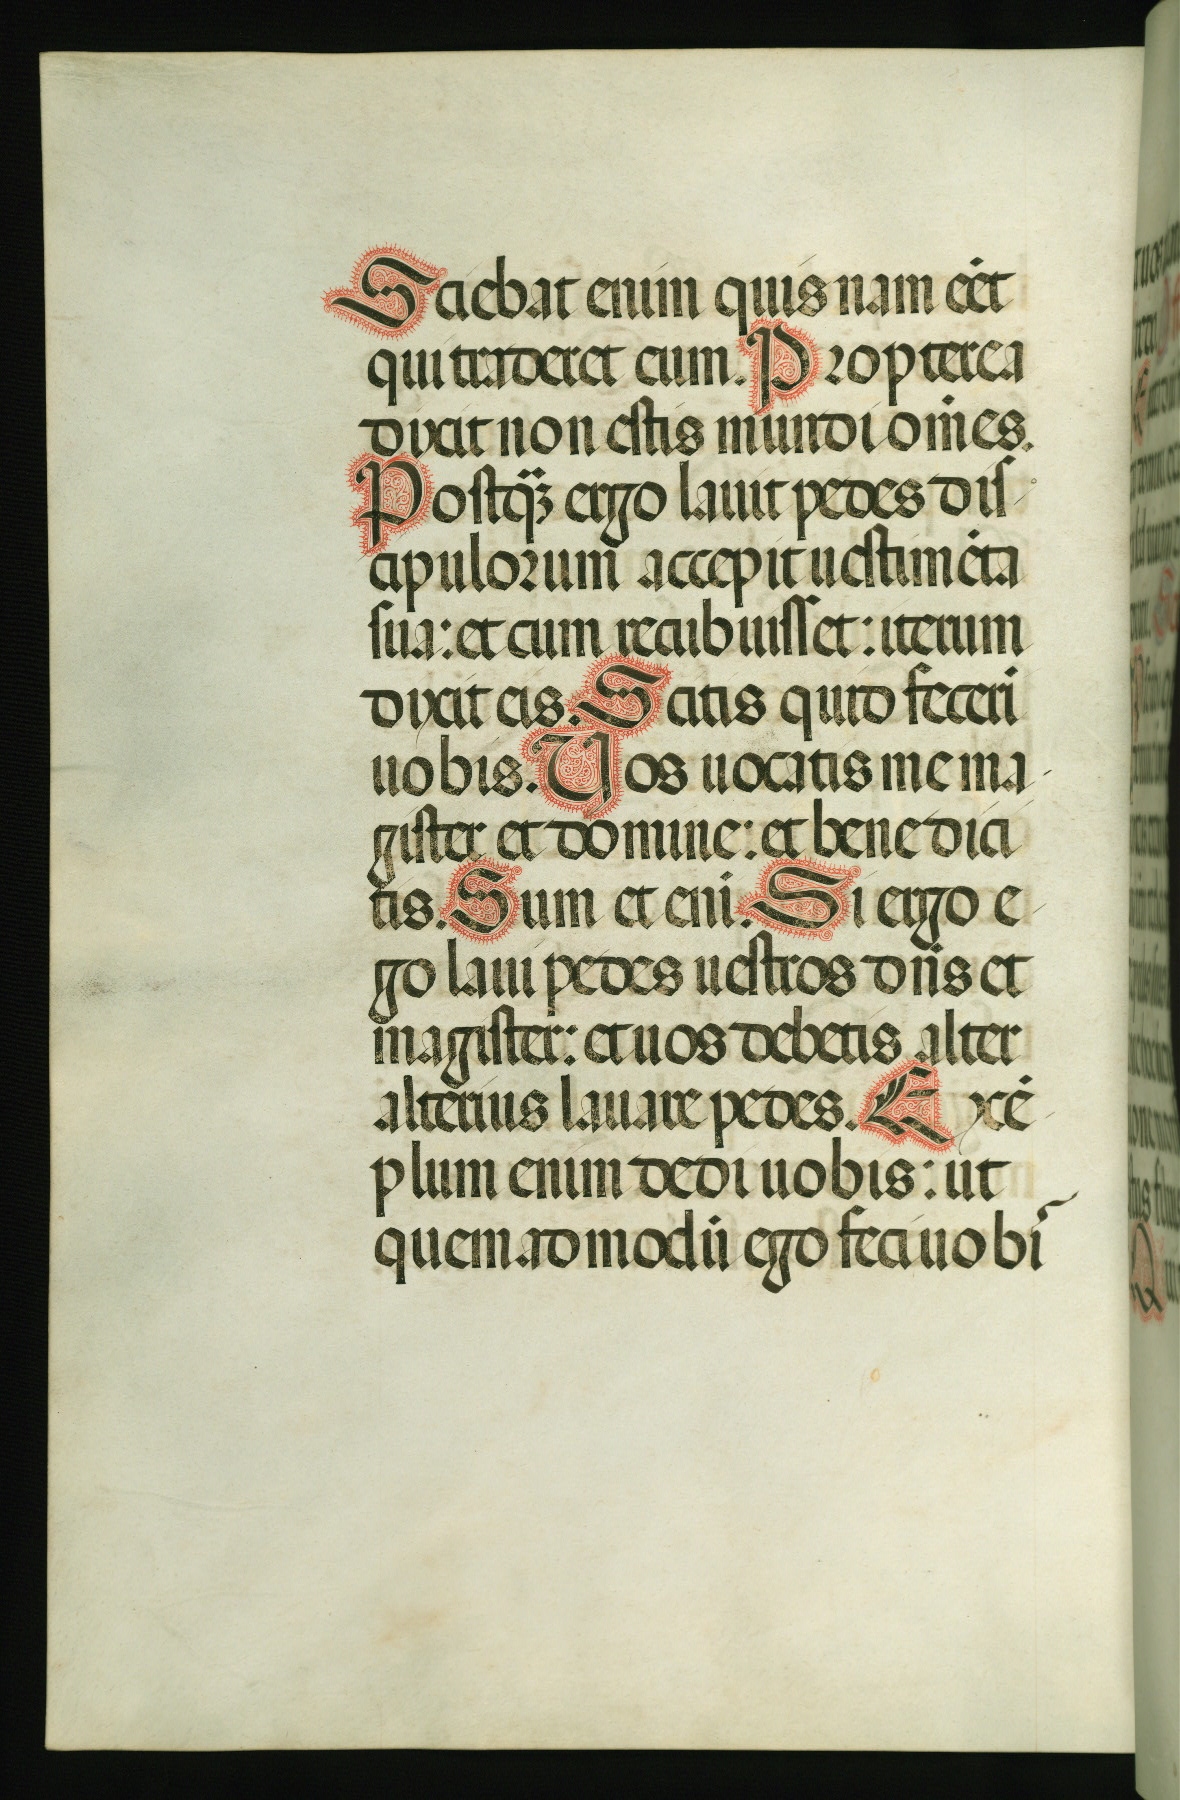 Sciebat enim quisnam eēt
qui traderet eum. Propterea
dixit non estis mundi om̄es.
Postq̄ꝫ ergo lauit pedes dis
cipulorum accepit uestimēta
sua: et cum recubuisset: iterum
dixit eis. Scitis quid feceri
uobis. Vos uocatis me ma
gister et domine: et bene dici
tis. Sum et eni. Si ergo e
go laui pedes uestros dn̄s et
magister: et uos debetis alter
alterius lauare pedes. Exē
plum enim dedi uobis: ut
quemadmodū ego feci uobi